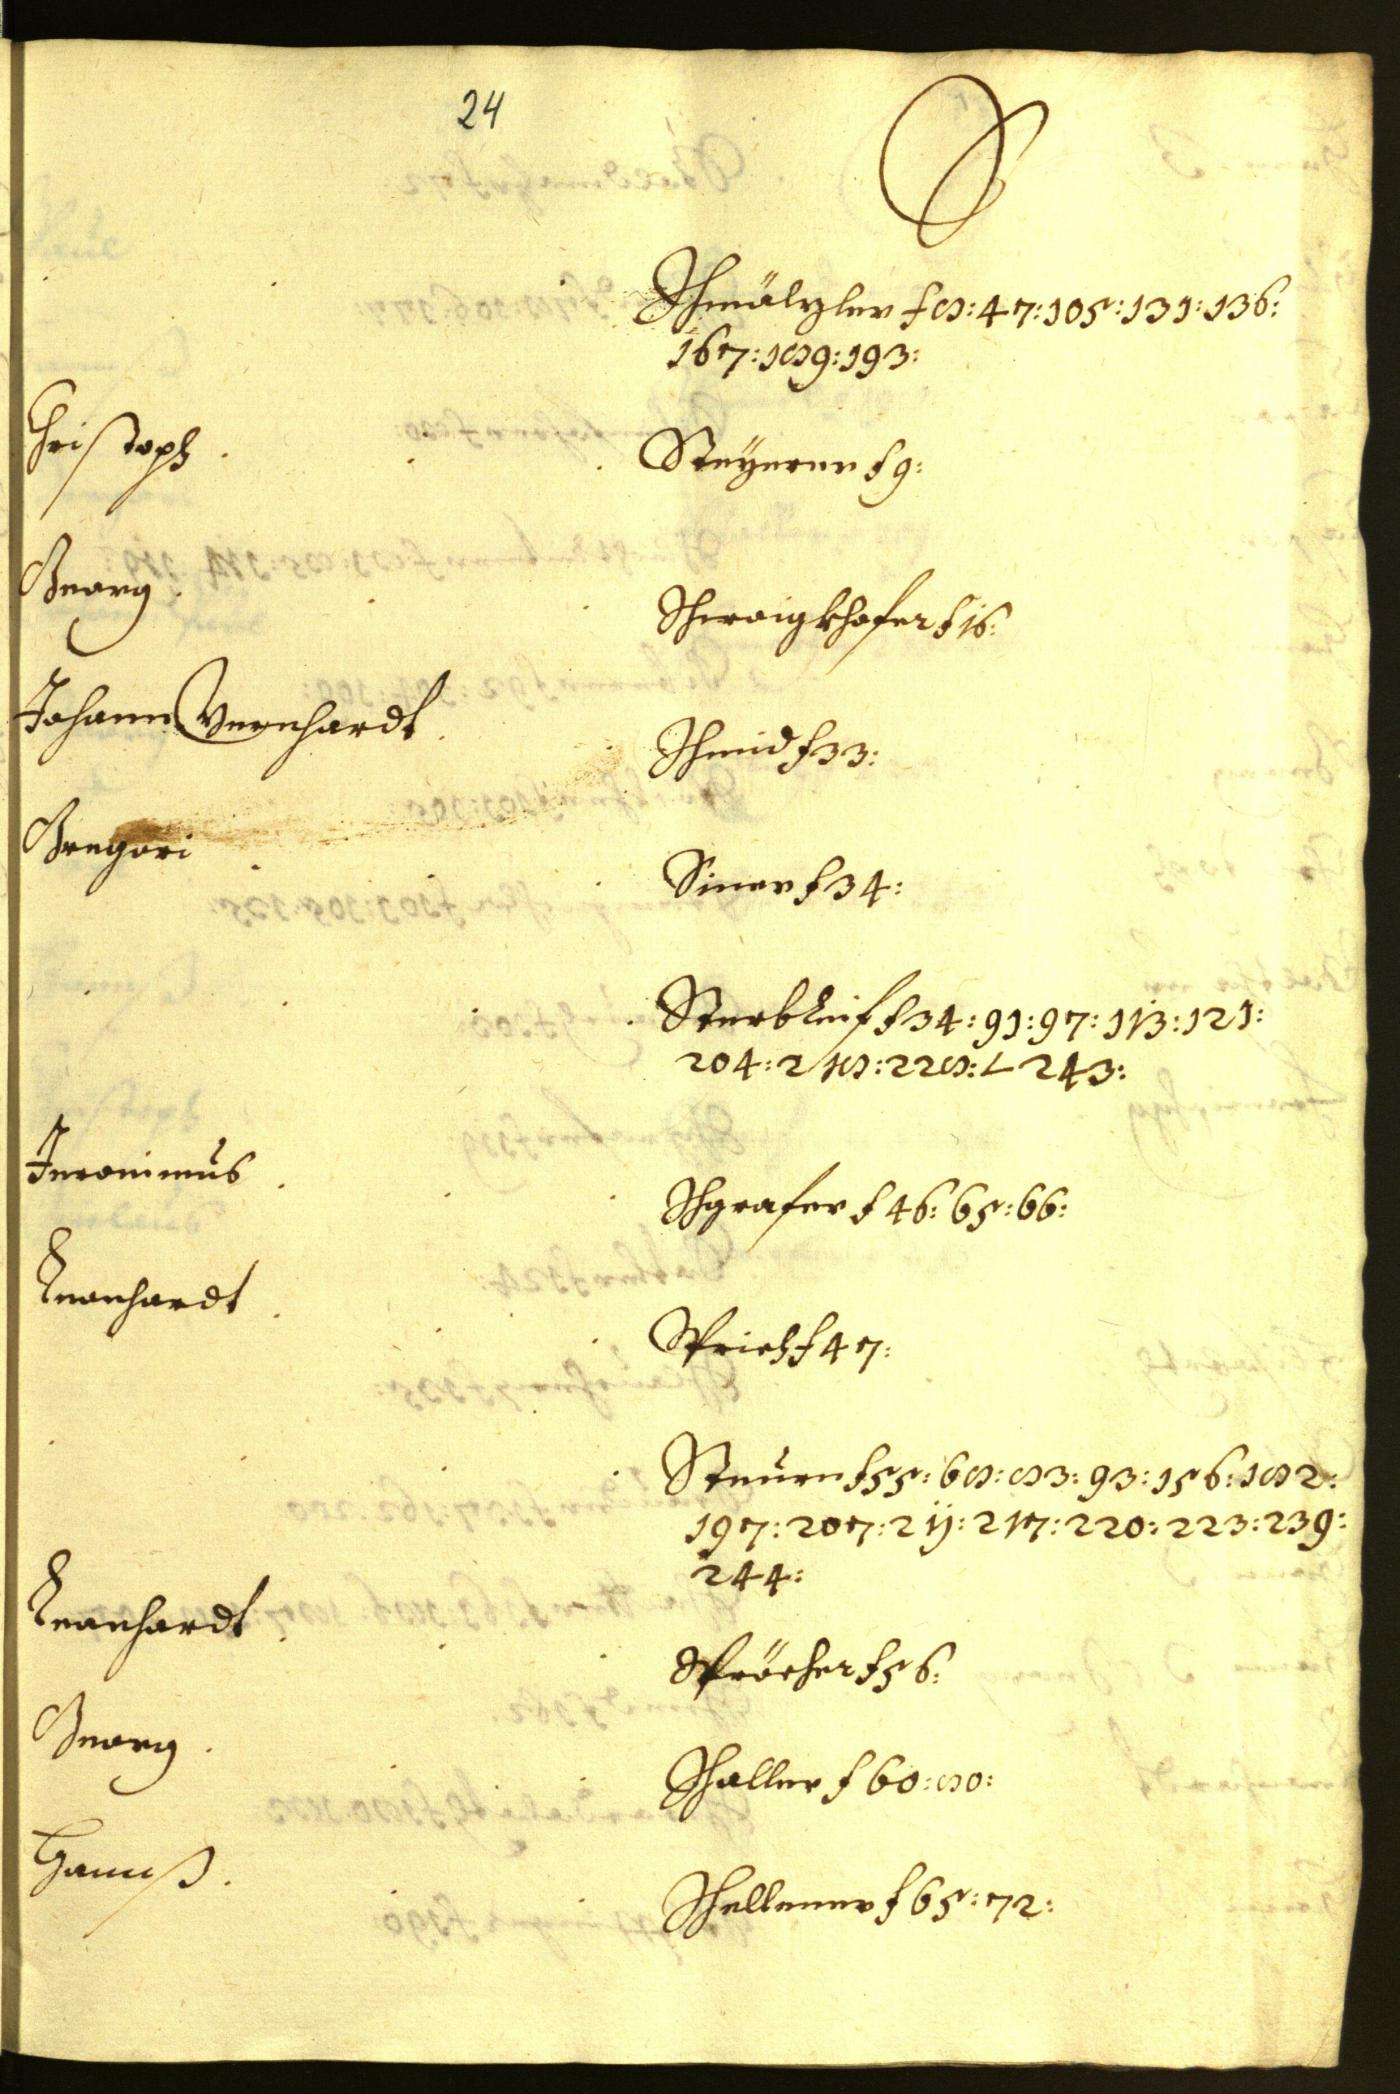 24
S
Schmälzler f 8: 47: 105: 131: 136:
167: 189: 193:
Christoph . Steyerer f 9:
Georg . Schwaigkhofer f 16:
Johann Vernhardt . Schmid f 33:
Gregori . Siner f 34:
Sterbleif f 34: 91: 97: 113: 121:
204: 218: 228: 243:
Jeronimus . Schgrafer f 46: 65: 66:
Leonhardt . Sprich f 47:
Steurn f 55: 68: 83: 93: 156: 182:
197: 207: 211: 217: 220: 223: 239:
244:
Leonhardt . Spröcher f 56:
Georg . Schaller f 60: 80:
Hannß . Schellener f 65: 72: